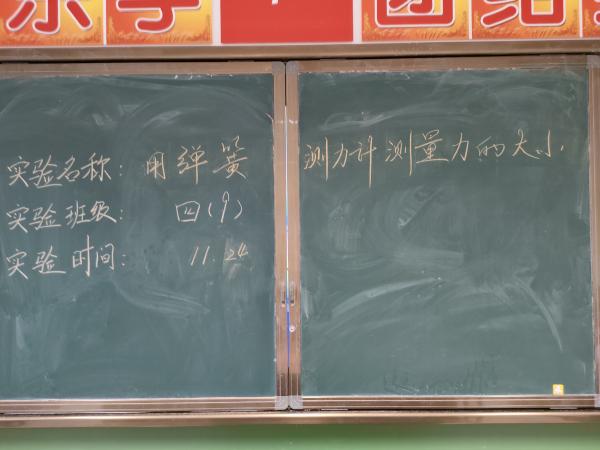 团结
实验名称：用弹簧测力计测量力的大小.
实验班级：四(9)
实验时间：11.24